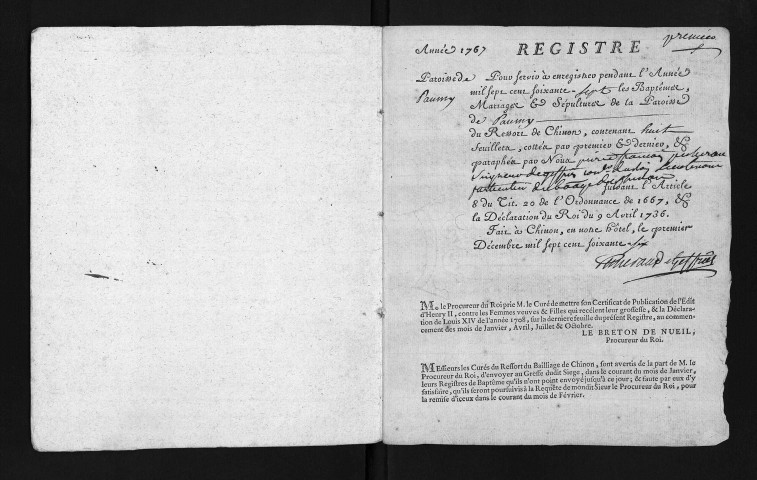 Année 1767 REGISTRE premier
Paroisse de Paumy
Pour servir à enregistrer pendant l'Année
mil sept cent soixante-sept les Baptêmes,
Mariages & Sépultures de la Paroisse
de Paumy
du Ressort de Chinon, contenant huit
feuillets, cottés par premier & dernier, &
paraphés par Nous pierre francois
Seigneur de
particulier du suivant l'Article
8 du Tit. 20 de l'Ordonnance de 1667, &
la Déclaration du Roi du 9 Avril 1736.
Fait à Chinon, en notre hôtel, le premier
Décembre mil sept cent soixante-six
M. le Procureur du Roi prie M. le Curé de mettre son Certificat de Publication de l'Edit
d'Henry II, contre les Femmes veuves & Filles qui recélent leur grossesse, & la Déclara-
tion de Louis XIV de l'année 1708, sur la derniere feuille du présent Registre, au commen-
cement des mois de Janvier, Avril, Juillet & Octobre.
LE BRETON DE NUEIL,
Procureur du Roi.
MEssieurs les Curés du Ressort du Bailliage de Chinon, sont avertis de la part de M. le
Procureur du Roi, d'envoyer au Greffe dudit Siege, dans le courant du mois de Janvier,
leurs Registres de Baptême qu'ils n'ont point envoyé jusqu'à ce jour; & faute par eux d'y
satisfaire, qu'ils seront poursuivis à la Requête de mondit Sieur le Procureur du Roi, pour
la remise d'iceux dans le courant du mois de Février.